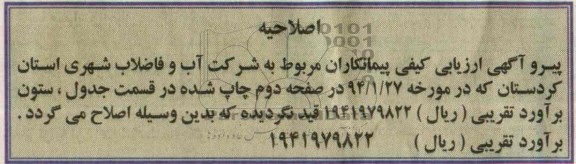 اصلاحیه
پیرو آگهی ارزیابی کیفی پیمانکاران مربوط به شرکت آب و فاضلاب شهری استان
کردستان که در مورخه ۹۴/۱/۲۷ در صفحه دوم چاپ شده در قسمت جدول ، ستون
برآورد تقریبی ( ریال ) ۱۹۴۱۹۷۹۸۲۲ قید نگردیده که بدین وسیله اصلاح می گردد .
برآورد تقریبی ( ریال ) ۱۹۴۱۹۷۹۸۲۲